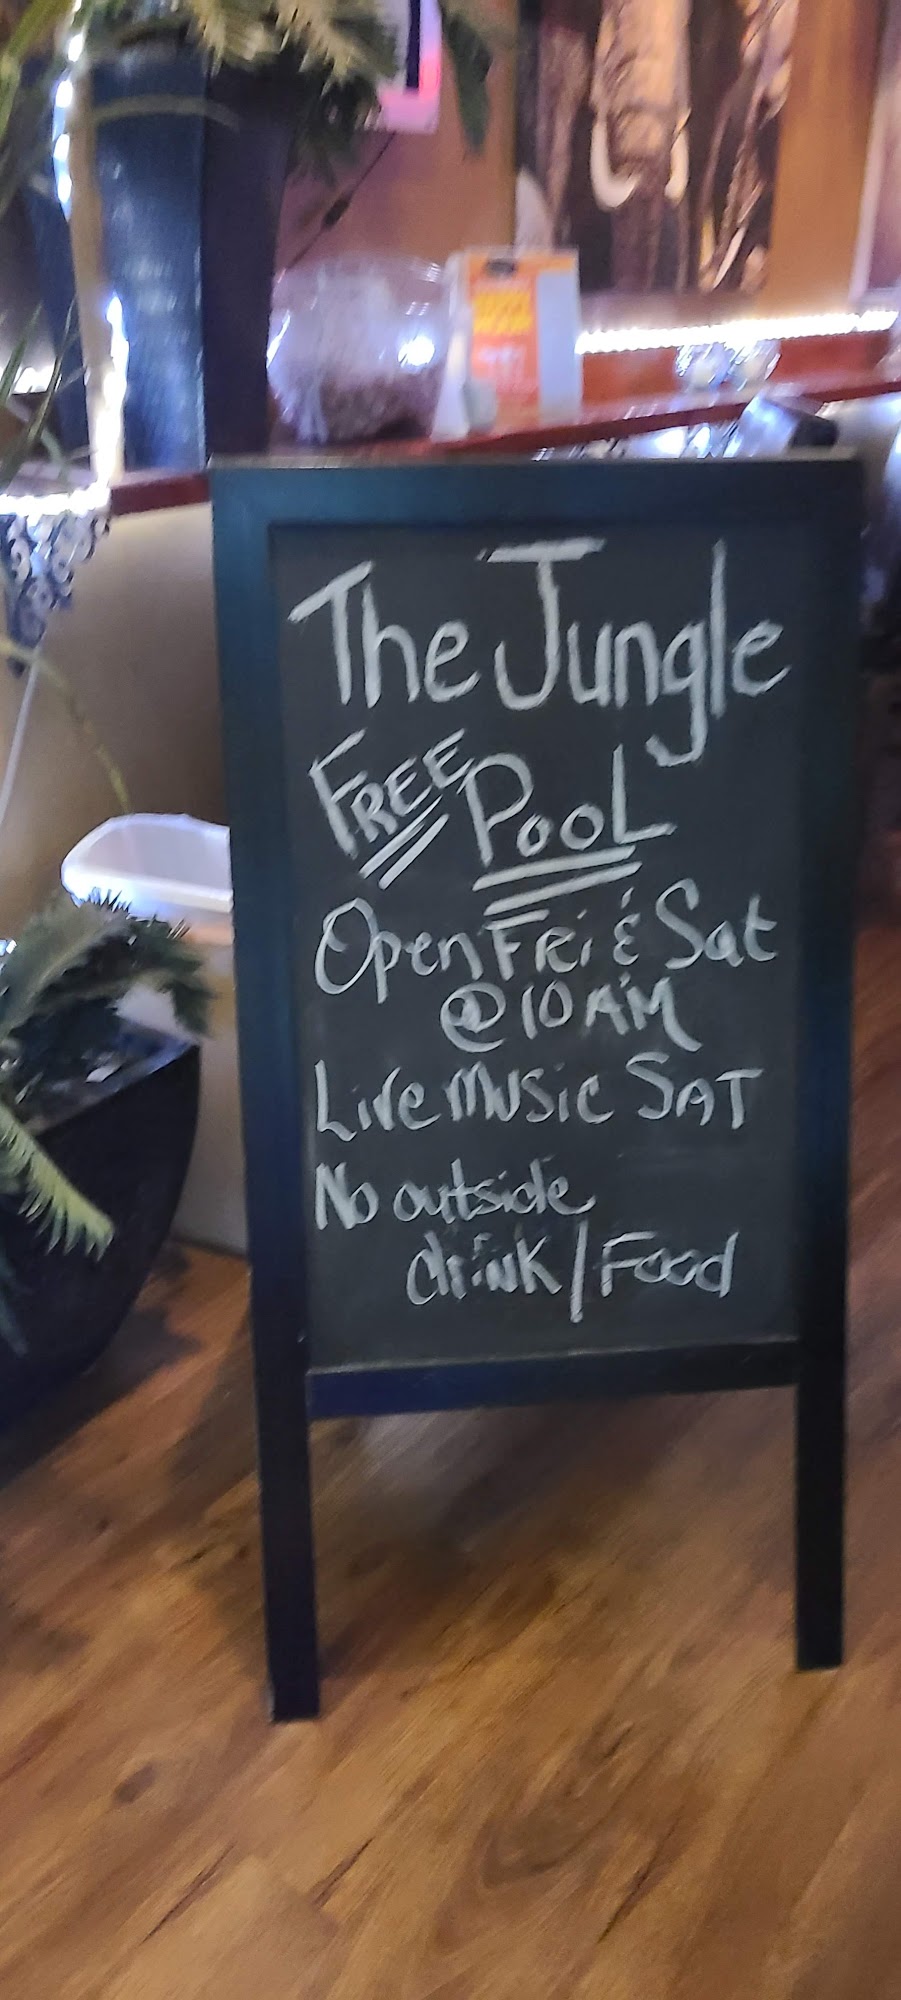 The Jungle
FREE POOL
Open FRi & Sat
@ 10 AM
Live MUSic SAT
No outside
drink / Food